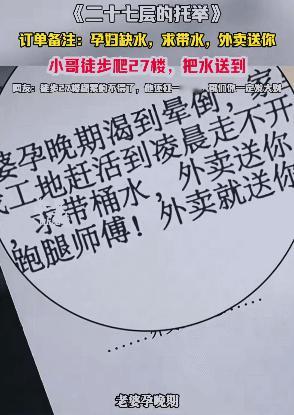 《二十七层的托举》
订单备注：孕妇缺水，求带水，外卖送你
小哥徒步爬27楼，把水送到
婆孕晚期渴到晕倒，家
工地赶活到凌晨走不开
，求带桶水，外卖送你
跑腿师傅！外卖就送你
老婆孕晚期